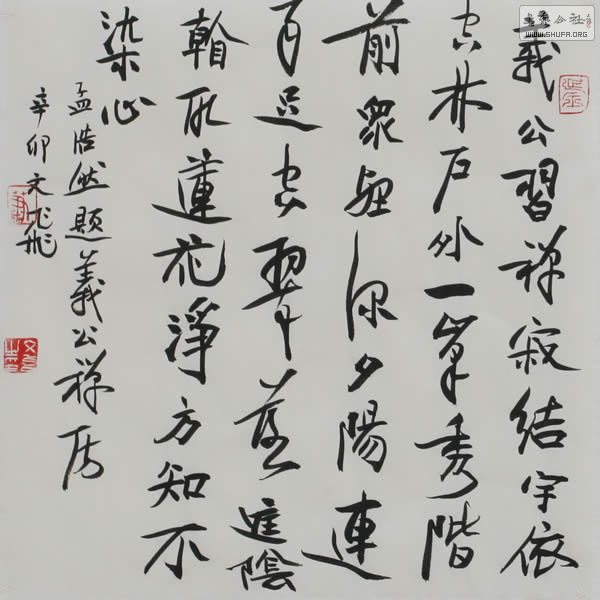 義公習禅寂結宇依
空林戶外一峯秀階
前衆壑深夕陽連
雨足空翠落庭陰
看取蓮花淨方知不
染心
孟浩然題義公禅房
辛卯文飛
公社
WWW.SHUFA.ORG